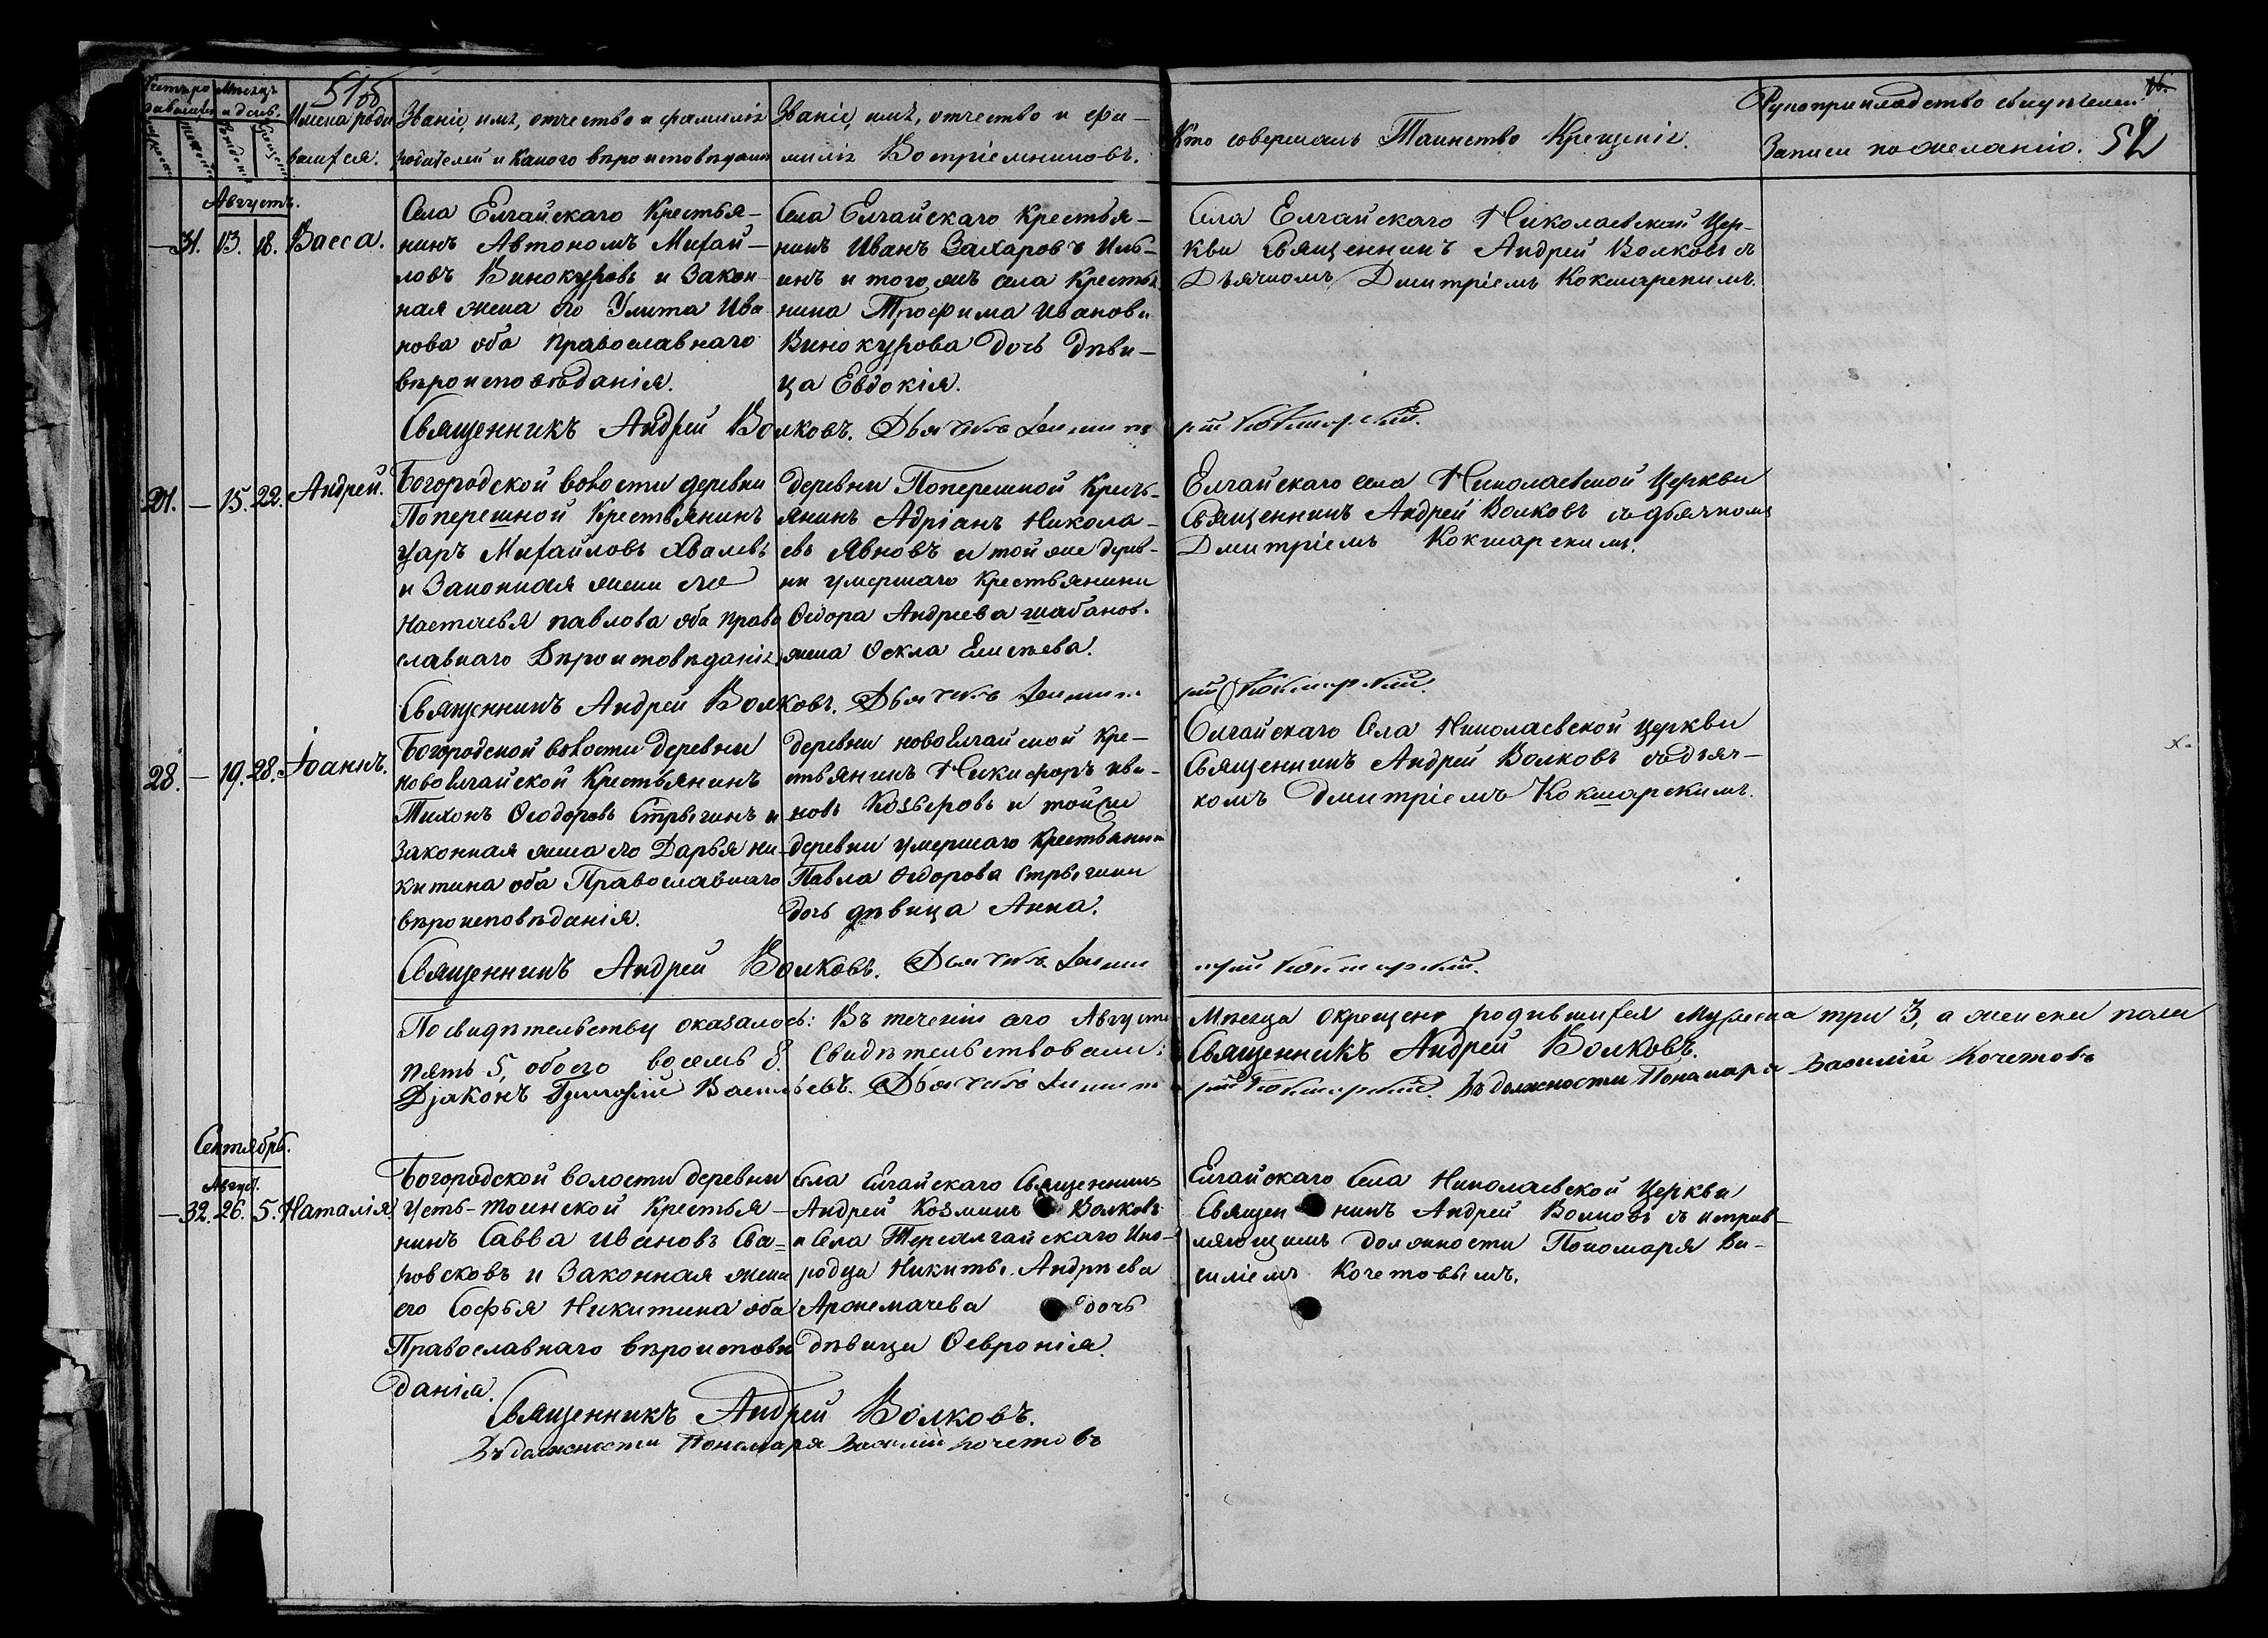 51об
Имена роди
вшихся.
Званіе, имя, отчество и фамилія
родителей и какого вѣроисповѣданія
Званіе, имя, отчество и фа-
милія Воспріемниковъ.
Кто совершалъ Таинство Крещенія.
Рукоприкладство свидѣтелей
Записи по желанію. 52
Августъ.
31. 13. 18. Васса.
Села Елгайскаго Крестья-
нинъ Автономъ Михай-
ловъ Винокуровъ и Закон-
ная жена его Улита Ива
нова оба Православнаго
вѣроисповѣданія.
Села Елгайскаго Крестья-
нинъ Иванъ Захаровъ Иль-
инъ и того же села Крестья
нина Трофима Иванова
Винокурова дочь дѣви-
ца Евдокія.
Села Елгайскаго Николаевской Цер-
кви Священникъ Андрей Волковъ съ
Дьячкомъ Димитріемъ Кокшарскимъ.
Священникъ Андрей Волковъ. Дьячекъ Димитрій Кокшарскій.
21. — 15. 22. Андрей.
Богородской волости деревни
Поперешной Крестьянинъ
Михайловъ Хвалевъ
и Законная жена его
Настасья павлова оба право
славнаго Вѣроисповѣданія
деревни Поперешной Кресть-
янинъ Адріанъ Никола-
евъ Явновъ и той же дерев-
ни умершаго Крестьянина
Ѳедора Андреева шабанов.
жена Ѳекла Елисѣева.
Елгайскаго села Николаевской Церкви
Священникъ Андрей Волковъ съ дьячкомъ
Дмитріемъ Кокшарскимъ.
Священникъ Андрей Волковъ. Дьячекъ Димитрій Кокшарскій.
28. — 19. 28. Іоаннъ.
Богородской волости деревни
новоелгайской Крестьянинъ
Тихонъ Ѳеодоровъ Стрыгинъ и
законная жена его Дарья ни-
китина оба Православнаго
вѣроисповѣданія.
деревни новоелгайской Кре-
стьянинъ Никифоръ ива-
новъ Козыровъ и той же
деревни умершаго Крестьянина
Павла Ѳедорова Стрыгина
дочь дѣвица Анна.
Елгайскаго Села Николаевской Церкви
Священникъ Андрей Волковъ съ дьяч-
комъ Дмитріемъ Кокшарскимъ.
Священникъ Андрей Волковъ. Дьячекъ Димитрій Кокшарскій.
По свидѣтельству оказалось: Въ теченіи сего Августа Мѣсяца окрещено родившихся Мужеска три 3, а женска пола
пять 5, обоего восемь 8. Свидѣтельствовали: Священникъ Андрей Волковъ.
Діаконъ Васильевъ. Дьячекъ Димитрій Кокшарскій. Въ должности Понамаря Василій Кочетовъ
Сентябрь.
Август.
— 32. 26. 5. Наталія.
Богородской волости деревни
Усть-тоинской Крестья-
нинъ Савва Ивановъ Сва=
ровсковъ и Законная жена
его Софья Никитина оба
Православнаго вѣроисповѣ
данія.
Села Елгайскаго Священникъ
Андрей Козминъ Волковъ
и Села Тереалгайскаго Ино-
родца Никиты Андрѣева
Аронемачева дочь
дѣвица Ѳевронія.
Елгайскаго Села Николаевской Церкви
Священникъ Андрей Волковъ съ исправ-
ляющимъ должности Пономаря Ва-
силіемъ Кочетовымъ.
Священникъ Андрей Волковъ.
Въ должности Понамаря Василій кочетовъ